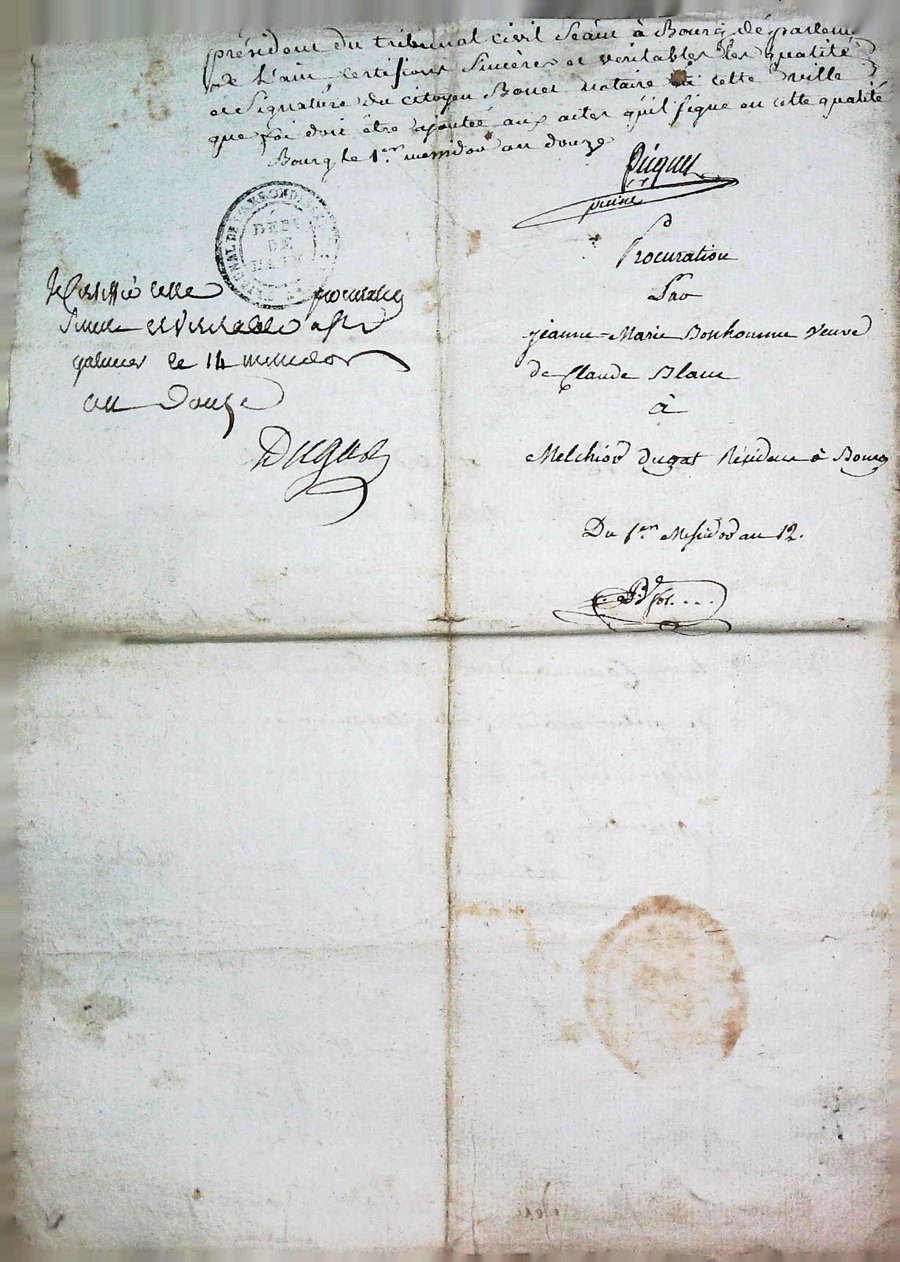 président du tribunal civil séant à Bourg, département
de L'ain certifions sincères et véritables les qualité
et signature du citoyen Bonet notaire en cette ville
que foi doit être ajoutée aux actes qu'il signe en cette qualité
Bourg le 1.er messidor an douze
TRIBUNAL DE L'ARRONDIS
DÉPT
DE
L'AIN
Procuration
Par
jeanne-Marie Bonhomme Veuve
de Claude Blanc
à
Melchior dugat Résidant à Bourg
Du 1.er Messidor an 12.
procuration
sincere et veritable
le 14 messidor
an Douze
Dugat